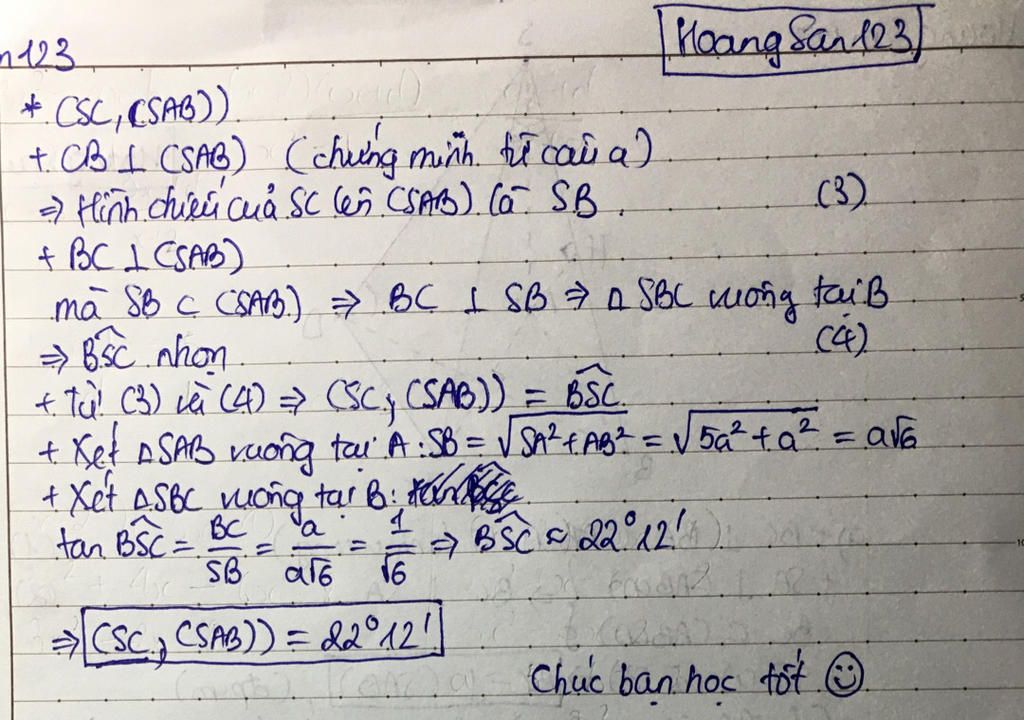 n123
HoangSan123
* (SC, (SAB))
+ CB ⊥ (SAB) (chứng minh từ câu a)
⇒ Hình chiếu của SC lên (SAB) là SB. (3)
+ BC ⊥ (SAB)
mà SB ⊂ (SAB) ⇒ BC ⊥ SB ⇒ Δ SBC vuông tại B
⇒ BSC^ nhọn (4)
+ Từ (3) và (4) ⇒ (SC, (SAB)) = BSC^
+ Xét ΔSAB vuông tại A: SB = √(SA² + AB²) = √(5a² + a²) = a√6
+ Xét ΔSBC vuông tại B:
tan BSC^ = BC/SB = a/a√6 = 1/√6 ⇒ BSC^ ≈ 22°12'
⇒ (SC, (SAB)) = 22°12'
Chúc bạn học tốt ☺